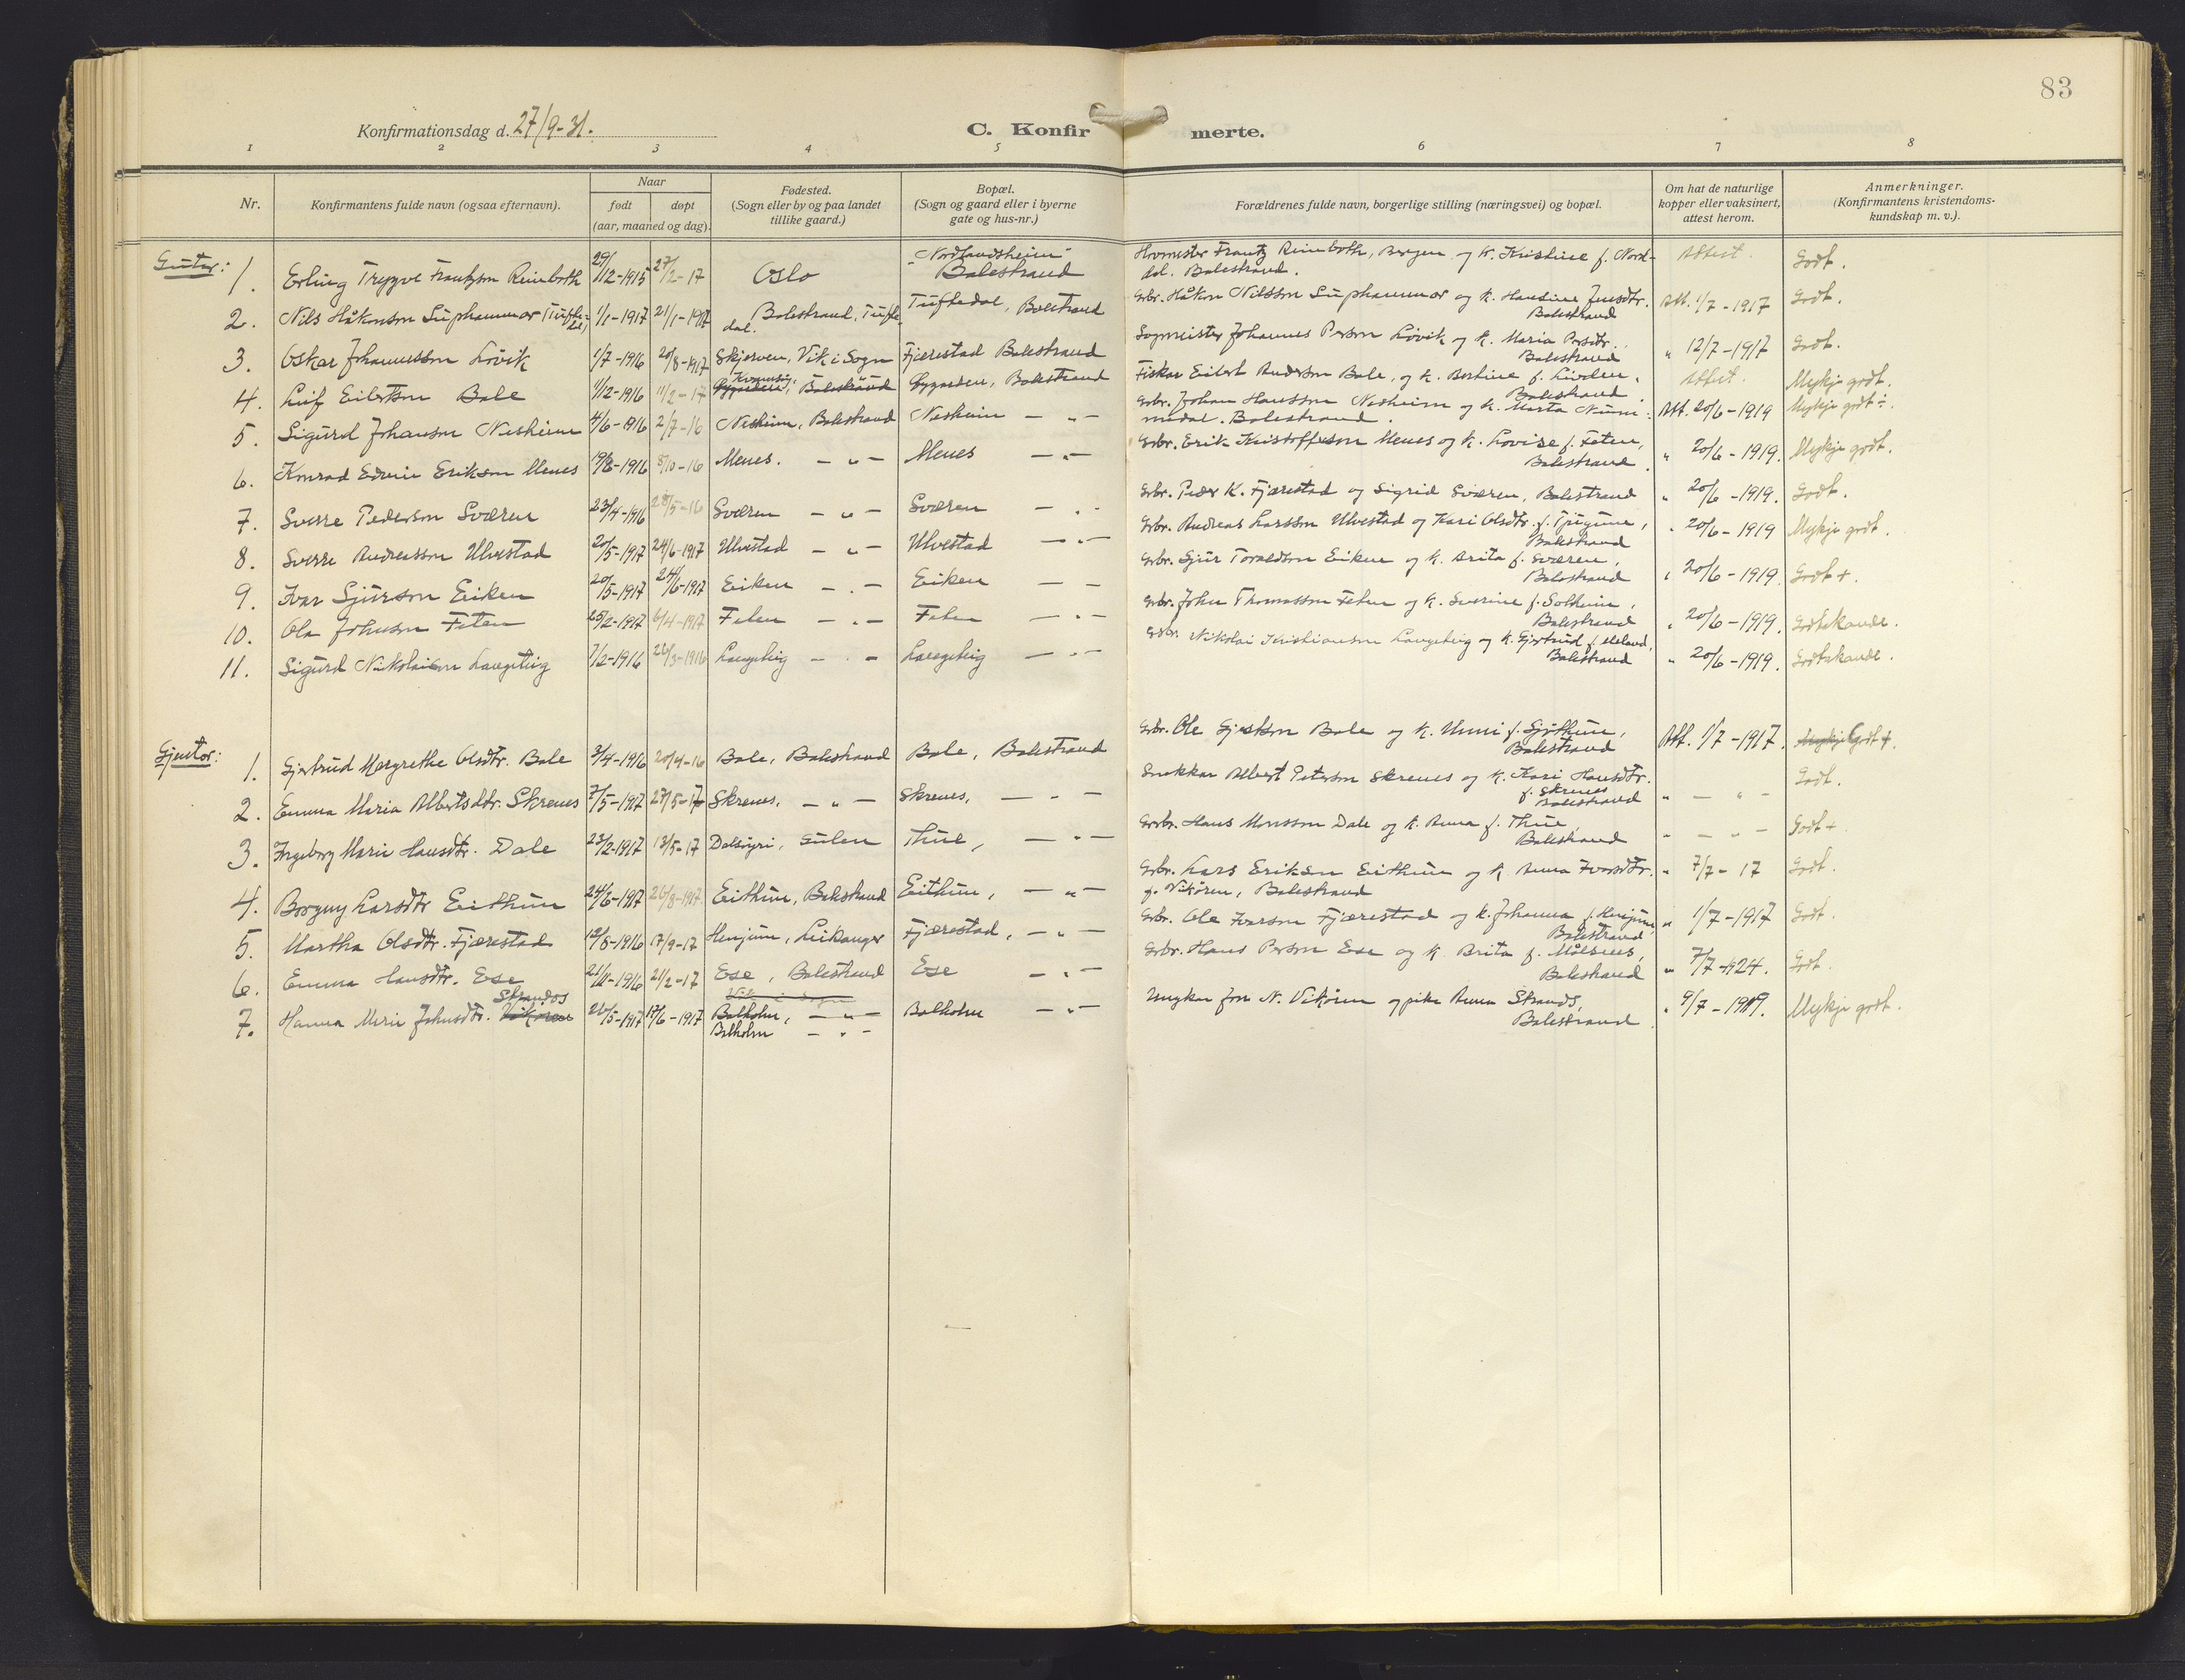 83
Konfirmationsdag d. 27/9-31.
C. Konfirmerte.
1 2 3 4 5 6 7 8
Nr.
Konfirmantens fulde navn (ogsaa efternavn).
Naar
født døpt
(aar, maaned og dag).
Fødested.
(Sogn eller by og paa landet
tillike gaard.)
Bopæl.
(Sogn og gaard eller i byerne
gate og hus-nr.)
Forældrenes fulde navn, borgerlige stilling (næringsvei) og bopæl.
Om hat de naturlige
kopper eller vaksinert,
attest herom.
Anmerkninger.
(Konfirmantens kristendoms-
kundskap m. v.).
Gutar:
1. Erling Trygve Frantzson Reimboth 29/12-1915 27/2-17 Oslo "Nordlandsheim" Balestrand Hovmester Frantz Reimboth, Bergen og K. Kristine f. Nord-
dal. Balestrand. Attest. Godt.
2. Nils Håkonson Suphammar 1/1-1917 21/1-1917 Balestrand, Tufte-
dal. Tuftedal, Balestrand Gbr. Håkon Nilsson Suphammar og K. Hansine Jensdtr.
Balestrand Att. 1/7-1917 Godt.
3. Oskar Johannesson Lövik 1/7-1916 20/8-1917 Skjerven, Vik i Sogn Fjærestad Balestrand Sogmeister Johannes Person Lövik og K. Maria Persdtr.
Balestrand " 12/7-1917 Godt.
4. Leif Eilertson Bale 1/12-1916 11/2-17 Balestrand Balestrand Fiskar Eilert Anderson Bale, og K. Bertine f. Lunden,
Balestrand. Attest. Mykje godt.
5. Sigurd Johanson Nesheim 4/6-1916 2/7-16 Nesheim, Balestrand Nesheim - " - Gbr. Johan Hansson Nesheim og K. Marta Num-
medal. Balestrand. Att. 20/6-1919 Mykje godt ÷.
6. Konrad Edvin Erikson Menes 19/8-1916 8/10-16 Menes. - " - Menes - " - Gbr. Erik Kristofferson Menes og K. Lovise f. Feten,
Balestrand. " 20/6-1919. Mykje godt.
7. Sverre Pederson Sværen 23/4-1916 28/5-16 Sværen - " - Sværen - " - Gbr. Peder K. Fjærestad og Sigrid Sværen, Balestrand " 20/6-1919. Godt.
8. Sverre Andreasson Ulvestad 20/5-1917 24/6-1917 Ulvestad - " - Ulvestad - " - Gbr. Andreas Larsson Ulvestad og Kari Olsdtr. f. Tjugum,
Balestrand " 20/6-1919 Mykje godt.
9. Ivar Sjurson Eiken 20/5-1917 24/6-1917 Eiken - " - Eiken - - Gbr. Sjur Toraldson Eiken og K. Brita f. Sværen,
Balestrand " 20/6-1919. Godt +.
10. Ola Johnson Feten 25/2-1917 6/4-1917 Feten - " - Feten - " - Gbr. John Thomasson Feten og K. Severine f. Solheim,
Balestrand " 20/6-1919. Godtakande.
11. Sigurd Nikolaison Langeteig 7/2-1916 26/3-1916 Langeteig - " - Langeteig - " - Gbr. Nikolai Kristianson Langeteig og K. Gjertrud f. Meland,
Balestrand " 20/6-1919. Godtakande.
Gjentor:
1. Gjertrud Margrethe Olsdtr. Bale 3/4-1916 20/4-16 Bale, Balestrand Bale, Balestrand Gbr. Ole Gjertson Bale og K. Unni f. Sjøthun,
Balestrand Att. 1/7-1917. Mykje Godt +.
2. Emma Maria Albertsdtr. Skrenes 7/5-1917 27/5-17 Skrenes, - " - Skrenes, - " - Snekkar Albert Peterson Skrenes og K. Kari Hansdtr.
f. Skrenes
Balestrand " - " - Godt.
3. Ingeborg Marie Hansdtr. Dale 23/2-1917 13/5-17 Dalsöyri, Gulen Thue, - " - Gbr. Hans Monsson Dale og K. Anna f. Thue,
Balestrand " - " - Godt +
4. Borgny Larsdtr Eithun 24/6-1917 26/8-1917 Eithun, Balestrand Eithun, - " - Gbr. Lars Erikson Eithun og K Anna Ivarsdtr.
f. Vikören, Balestrand " 7/7-17 Godt.
5. Martha Olsdtr. Fjærestad 12/8-1916 17/9-17 Henjum, Leikanger Fjærestad, - " - Gbr. Ole Ivarson Fjærestad og K. Johanna f. Henjum,
Balestrand " 1/7-1917 Godt.
6. Emma Hansdtr. Ese 21/11-1916 21/2-17 Ese, Balestrand Ese - " - Gbr. Hans Person Ese og K. Brita f. Målsnes,
Balestrand " 7/7-24. Godt.
Strands
7. Hanna Marie Johnsdtr. Vikören 26/5-1917 17/6-1917 Vik i Sogn
Balholm, - " -
Balholm - " - Balholm - " - Ungkar Jon N. Vikören og pike Anna Strands,
Balestrand. " 9/7-1919. Mykje godt.